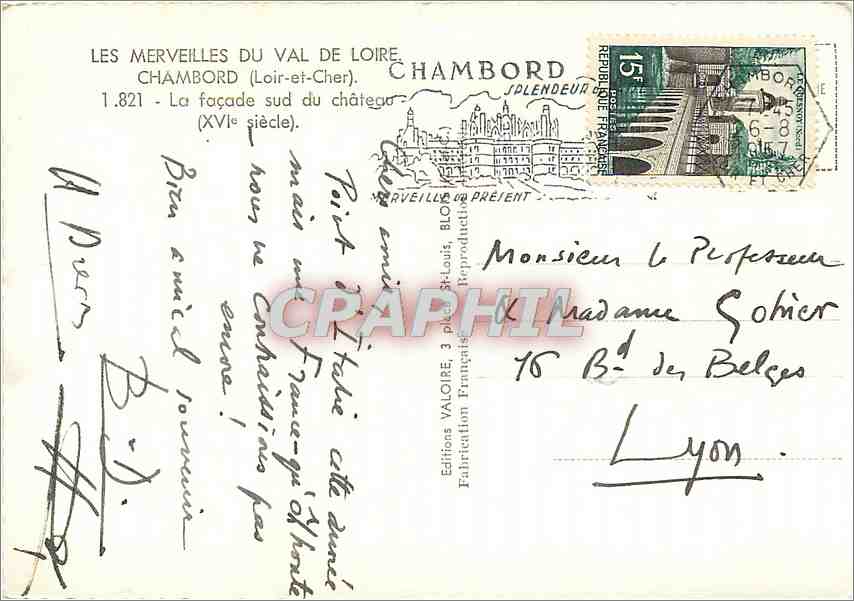 LES MERVEILLES DU VAL DE LOIRE
CHAMBORD (Loir-et-Cher).
1.821 - La façade sud du château
(XVIe siècle).
CHAMBORD
SPLENDEUR
MERVEILLE DU PRÉSENT
15F
POSTES
REPUBLIQUE FRANÇAISE
LE QUESNOY (Nord)
7-45
6-8
1957
ET CHER
Chers amis
Point d'Italie cette année
mais une France qu'
nous ne connaissions pas
encore !
Bien amical souvenir
Editions VALOIRE, 3 place St-Louis, BLO
Fabrication Française Reproduction
Monsieur le Professeur
& Madame Gohier
76 Bd des Belges
Lyon.
CPAPHIL